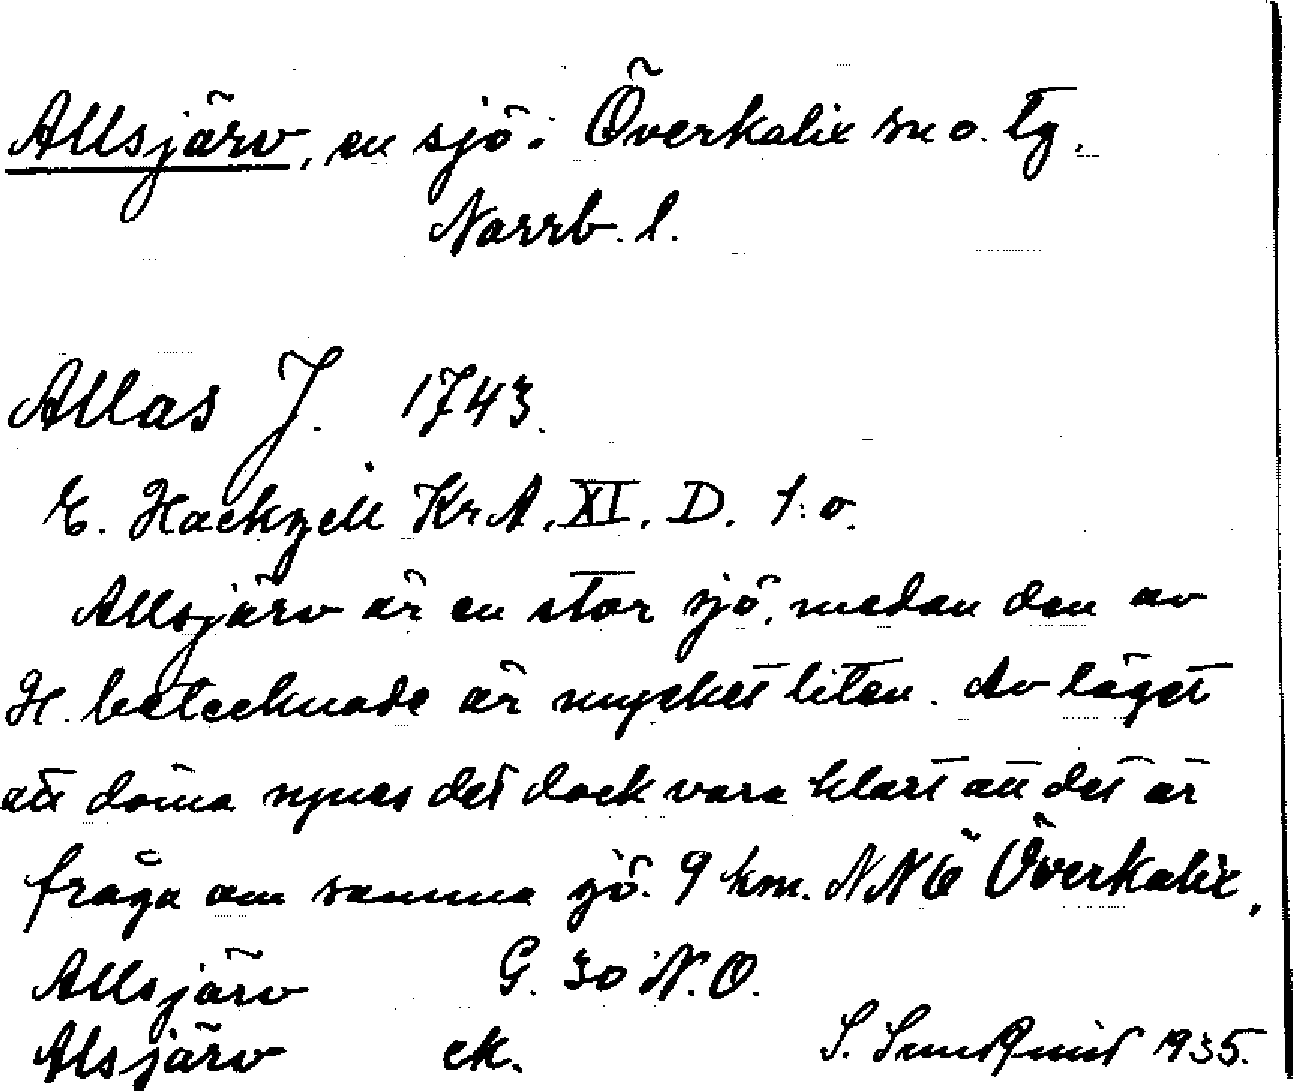 Allsjärv, en sjö i Överkalix sn o. tg.
Norrb. l.
Allas J. 1743.
E. Hackzell KrA. XI. D. 1:o.
Allsjärv är en stor sjö, medan den av
H. betecknade är mycket liten. Av läget
att döma synes det dock vara klart att det är
fråga om samma sjö. 9 km. NNÖ Överkalix.
Allsjärv G. 30 N.O.
Alsjärv ek. S. Sundquist 1935.